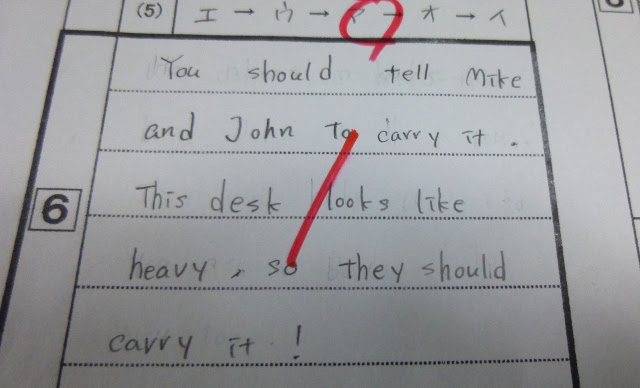 (5) エ → ウ → ア → オ → イ
6
You should tell Mike
and John To carry it.
This desk looks like
heavy, so they should
carry it!